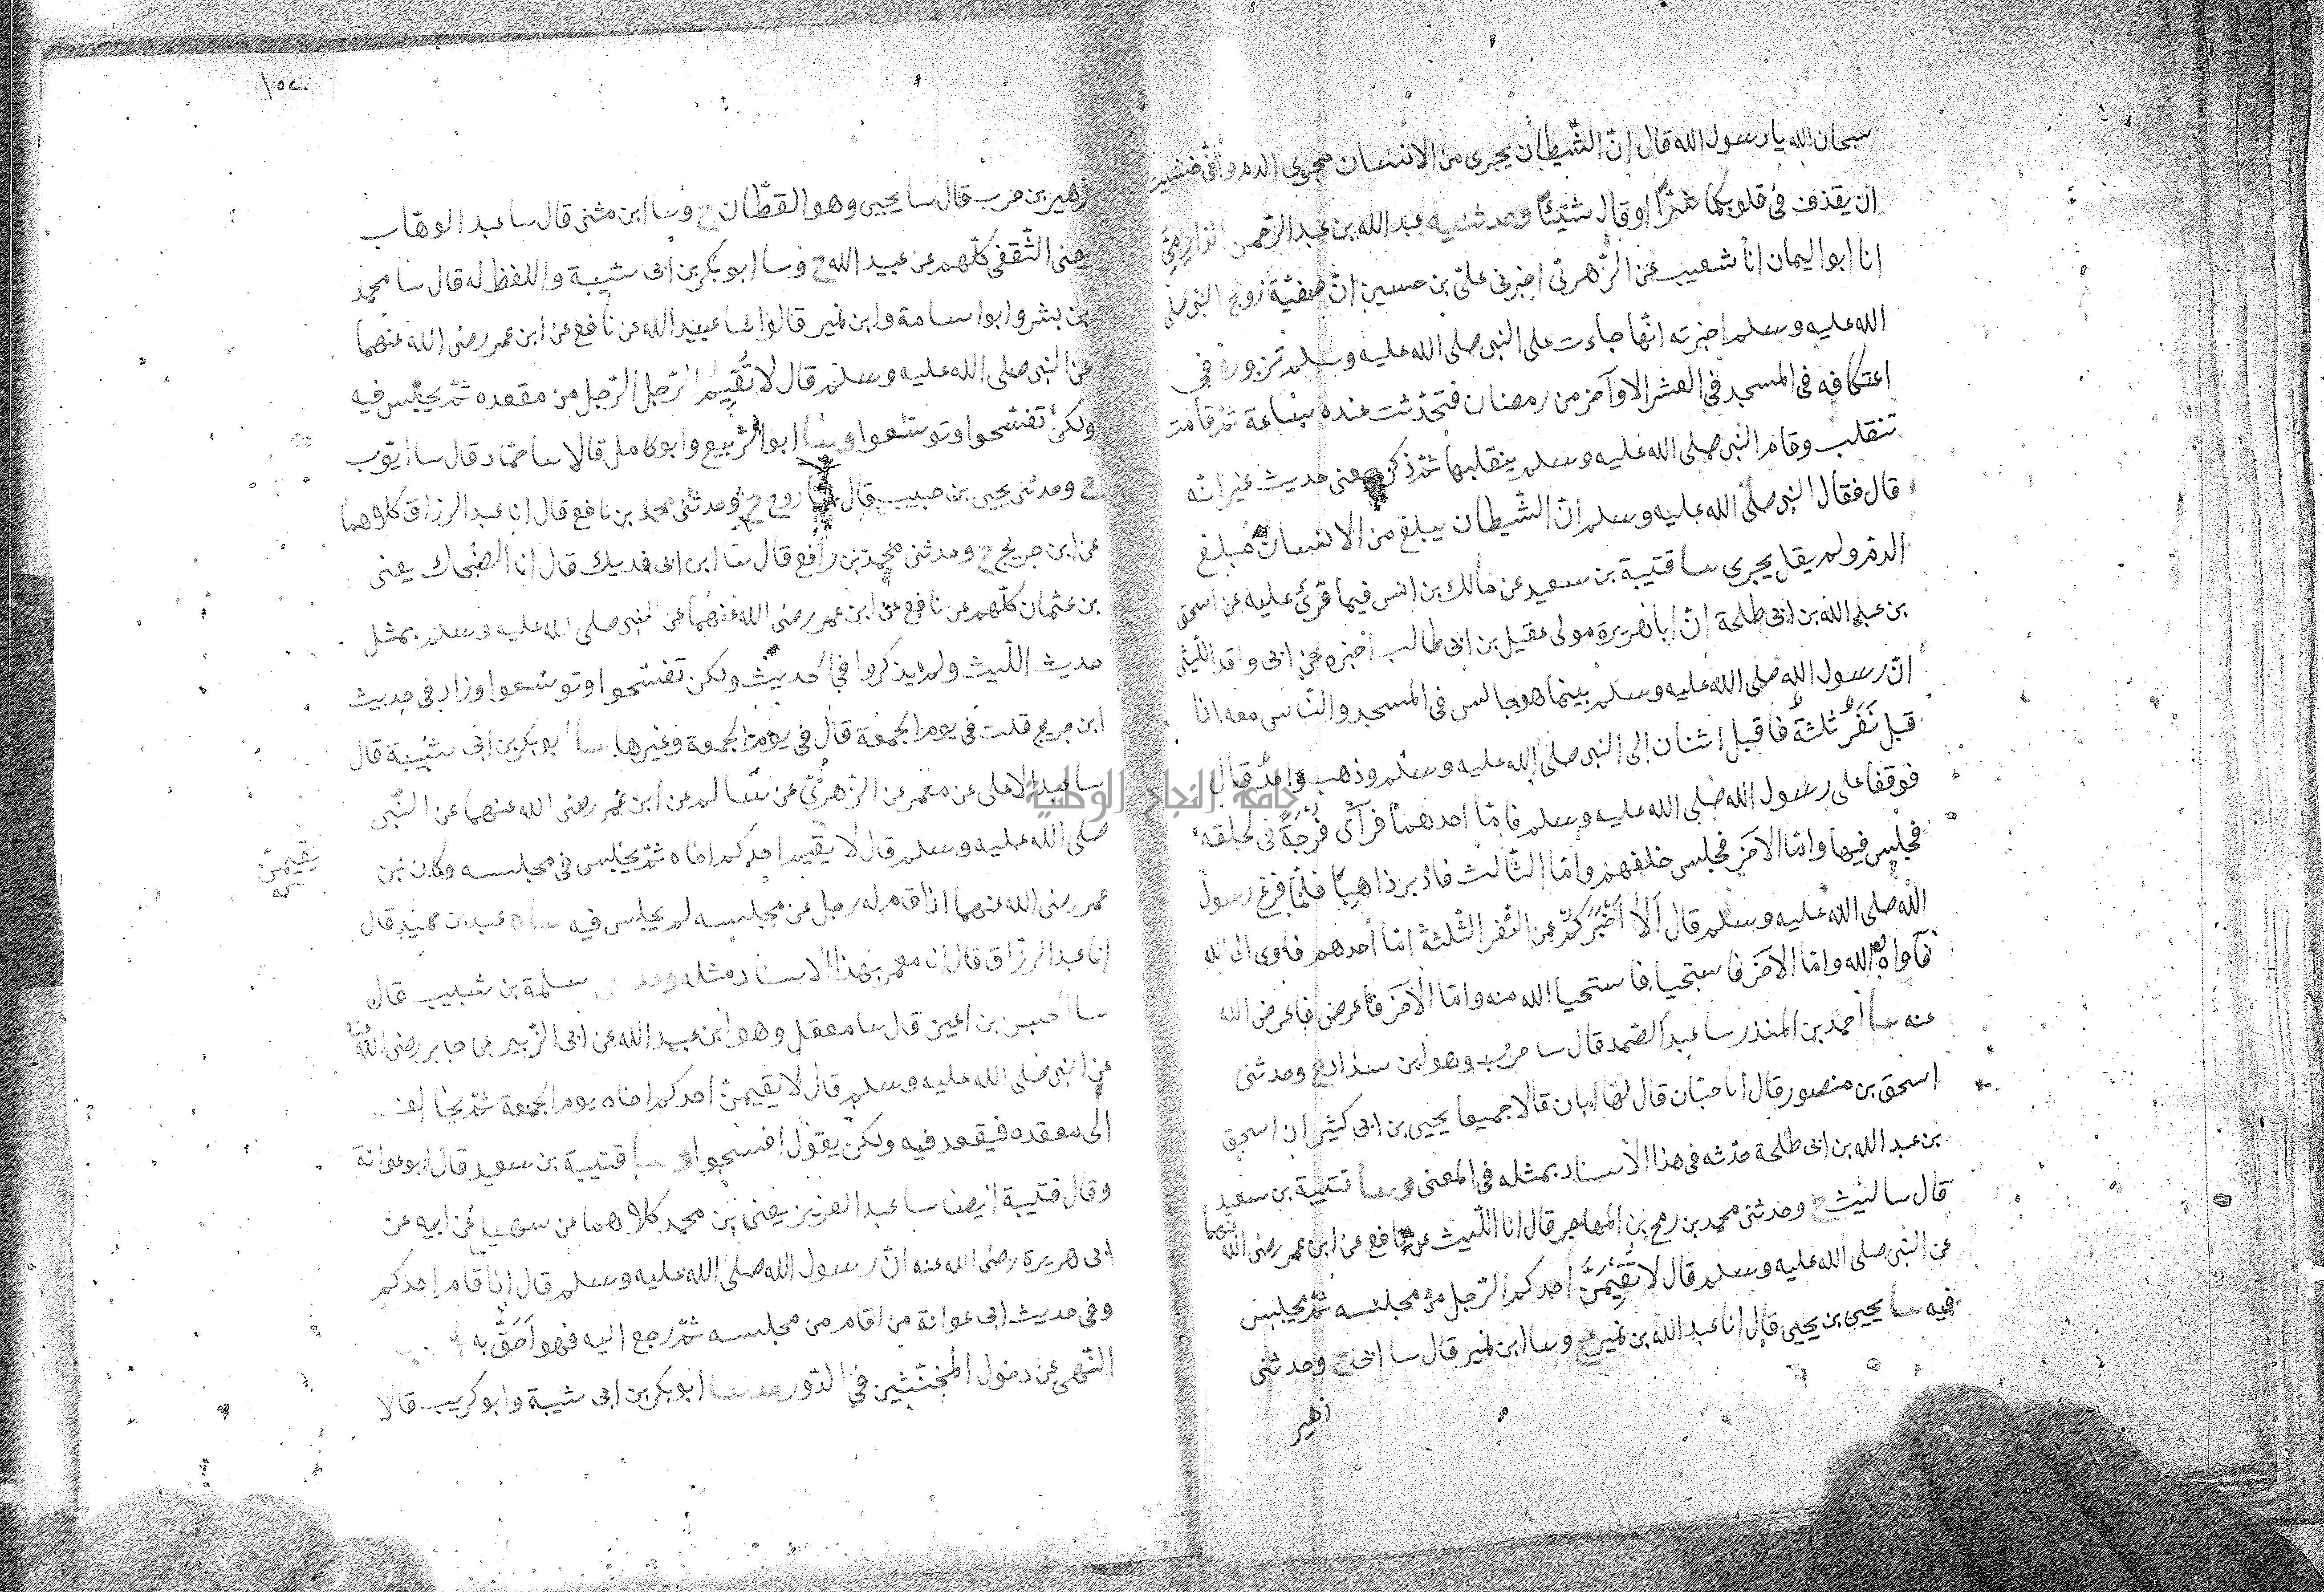 سبحان الله يا رسول الله قال انّ الشّيطان يجرى من الانسان مجرى الدم وانّى خشيت
ان يقذف فى قلوبكما شرّا او قال شيئًا وحدثنيه عبد الله بن عبد الرّحمن الدّارمىّ
انا ابو اليمان انا شعيب عن الزّهرىّ اخبرنى علىّ بن حسين انّ صفيّة زوج النبى صلى
الله عليه وسلم اخبرته انّها جاءت على النبى صلى الله عليه وسلم تزوره فى
اعتكافه فى المسجد فى العشر الاوآخر من رمضان فتحدّثت عنده ساعة ثمّ قامت
تنقلب وقام النبى صلى الله عليه وسلم ينقلبها ثمّ ذكر معنى حديث غير انّه
قال فقال النبى صلى الله عليه وسلم انّ الشّيطان يبلغ من الانسان مبلغ
الدم ولم يقل يجرى سا قتيبة بن سعيد عن مالك بن انس فيما قرئ عليه عن اسحق
بن عبد الله بن ابى طلحة انّ ابا هريرة مولى عقيل بن ابى طالب اخبره عن ابى واقد اللّيثى
انّ رسول الله صلى الله عليه وسلم بينما هو جالس فى المسجد والنّاس معه اذا
قبل نَفَرٌ ثلثةٌ فاقبل اثنان الى النبى صلى الله عليه وسلم وذهب واحدٌ قال
فوقفا على رسول الله صلى الله عليه وسلم فامّا احدهما فرآى فُرْجَةً فى الحلقه
فجلس فيها وامّا الآخر فجلس خلفهم وامّا الثّالث فادبر ذاهبًا فلمّا فرغ رسول
الله صلى الله عليه وسلم قال اَلا اُخْبِرُكم عن النّفر الثّلثة امّا أحدهم فاوى الى الله
فآواه الله وامّا الآخر فاستحيا فاستحيا الله منه وامّا الآخر فاعرض فاعرض الله
عنه سا أحمد بن المنذر سا عبد الصّمد قال سا حرب وهو ابن شدّاد ح وحدثنى
اسحق بن منصور قال انا حبّان قال ثنا ابان قالا جميعا يحيى بن ابى كثير ان اسحق
بن عبد الله بن ابى طلحة حدّثه فى هذا الاسناد بمثله فى المعنى وسا قتيبة بن سعيد
قال سا ليث ح وحدثنى محمد بن رمح بن المهاجر قال انا اللّيث عن نافع عن ابن عمر رضى الله عنهما
عن النبى صلى الله عليه وسلم قال لا تُقِيمَنَّ احدكم الرّجل من مجلسه ثمّ يجلس
فيه سا يحيى بن يحيى قال انا عبد الله بن نمير ح وسا ابن نمير قال سا ابى ح وحدثنى
زهير
١٥٧
زهير بن حرب قال سا يحيى وهو القطّان ح وسا ابن مثنى قال سا عبد الوهّاب
يعنى الثّقفى كلّهم عن عبيد الله ح وسا ابو بكر بن ابى شيبة واللفظ له قال سا محمد
بن بشر وابو اسامة وابن نمير قالوا سا عبيد الله عن نافع عن ابن عمر رضى الله عنهما
عن النبى صلى الله عليه وسلم قال لا تُقِيمُ الرّجل الرّجل من مقعده ثمّ يجلس فيه
ولكن تفسّحوا وتوسّعوا وسا ابو الرّبيع وابو كامل قالا سا حمّاد قال سا ايّوب
ح وحدثنى يحيى بن حبيب قال سا روح ح وحدثنى محمد بن نافع قال انا عبد الرزاق كلاهما
عن ابن جريج ح وحدثنى محمد بن رافع قال سا ابن ابى فديك قال انا الضّحاك يعنى
بن عثمان كلّهم عن نافع عن ابن عمر رضى الله عنهما عن النبى صلى الله عليه وسلم بمثل
حديث اللّيث ولم يذكروا فى الحديث ولكن تفسّحوا وتوسّعوا وزاد فى حديث
ابن جريج قلت فى يوم الجمعة قال فى يوم الجمعة وغيرها سا ابو بكر بن ابى شيبة قال
سا عبد الاعلى عن معمر عن الزّهرىّ عن سالم عن ابن عمر رضى الله عنهما عن النّبى
صلى الله عليه وسلم قال لا يقيم احدكم اخاه ثمّ يجلس فى مجلسه وكان بن
يقيمنّ
عمر رضى الله عنهما اذا قام له رجل عن مجلسه لم يجلس فيه ساه عبد بن حميد قال
انا عبد الرزّاق قال انا معمر بهذا الاسناد مثله سلمة بن شبيب قال
سا الحسن بن اعين قال سا معقل وهو ابن عبيد الله عن ابى الزّبير عن جابر رضى الله عنه
عن النبى صلى الله عليه وسلم قال لا يقيمنّ احدكم اخاه يوم الجمعة ثمّ يخالف
الى مقعده فيقعد فيه ولكن يقول افسحوا وسا قتيبة بن سعيد قال ابو عوانة
وقال قتيبة ايضا سا عبد العزيز يعنى بن محمد كلاهما عن سهيل عن ابيه عن
ابى هريرة رضى الله عنه انّ رسول الله صلى الله عليه وسلم قال اذا قام احدكم
وفى حديث ابى عوانة من اقام من مجلسه ثمّ رجع اليه فهو اَحَقُّ به
النّهى عن دخول المخنّثين فى الدّور ابو بكر بن ابى شيبة وابو كريب قالا
جامعة النجاح الوطنية